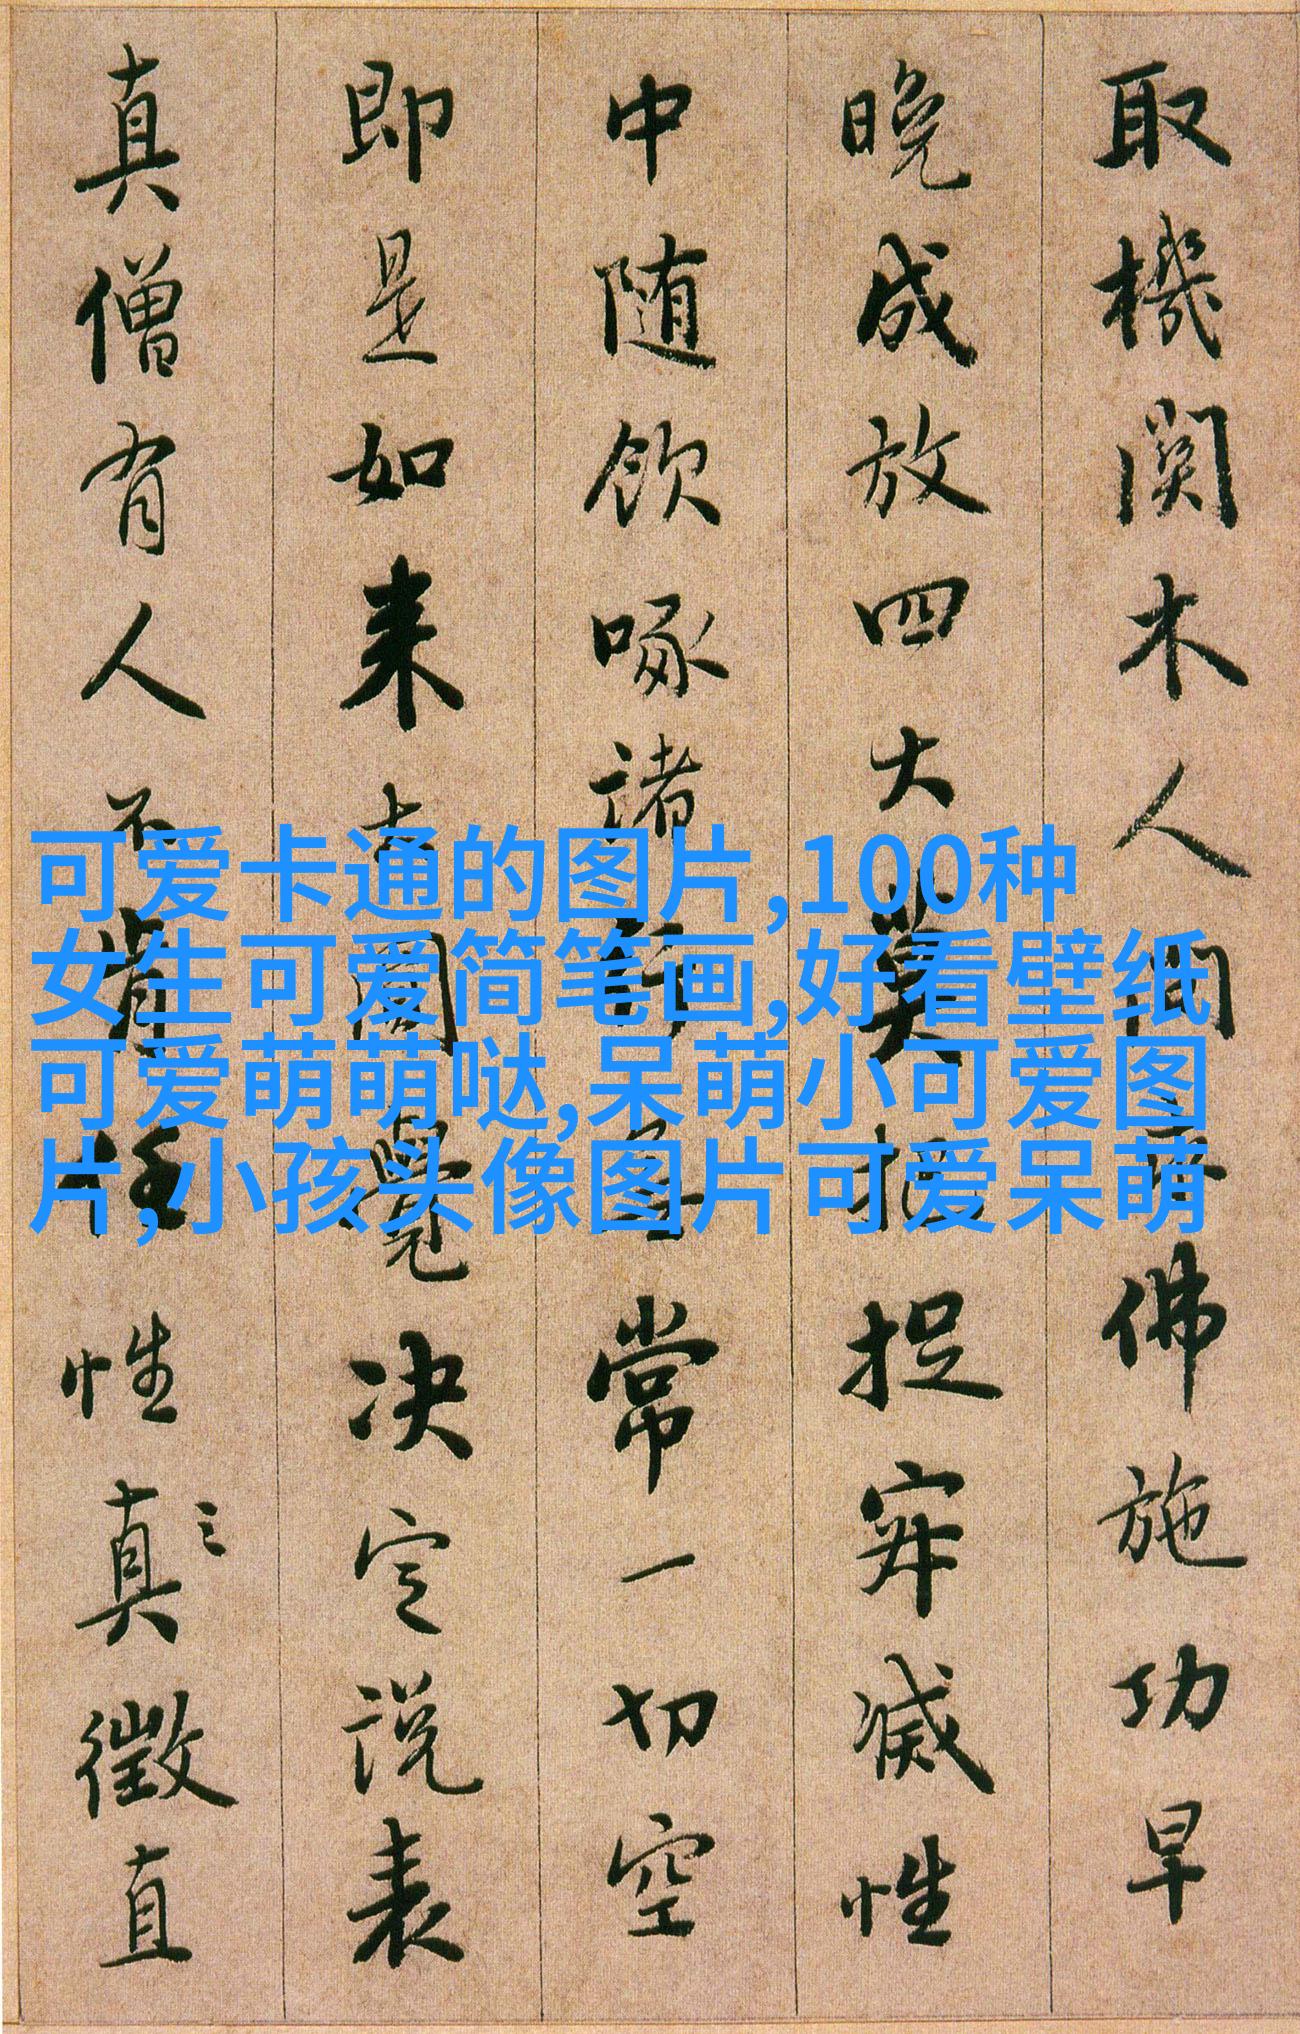 取機関木人問佛施功早
晚成放四大莫把捉寂滅性
中随飲啄諸行無常一切空
即是如来大圓覺决定説表
真僧有人不肯任性真徵直
可爱卡通的图片,100种
女生可爱简笔画,好看壁纸
可爱萌萌哒,呆萌小可爱图
片,小孩头像图片可爱呆萌